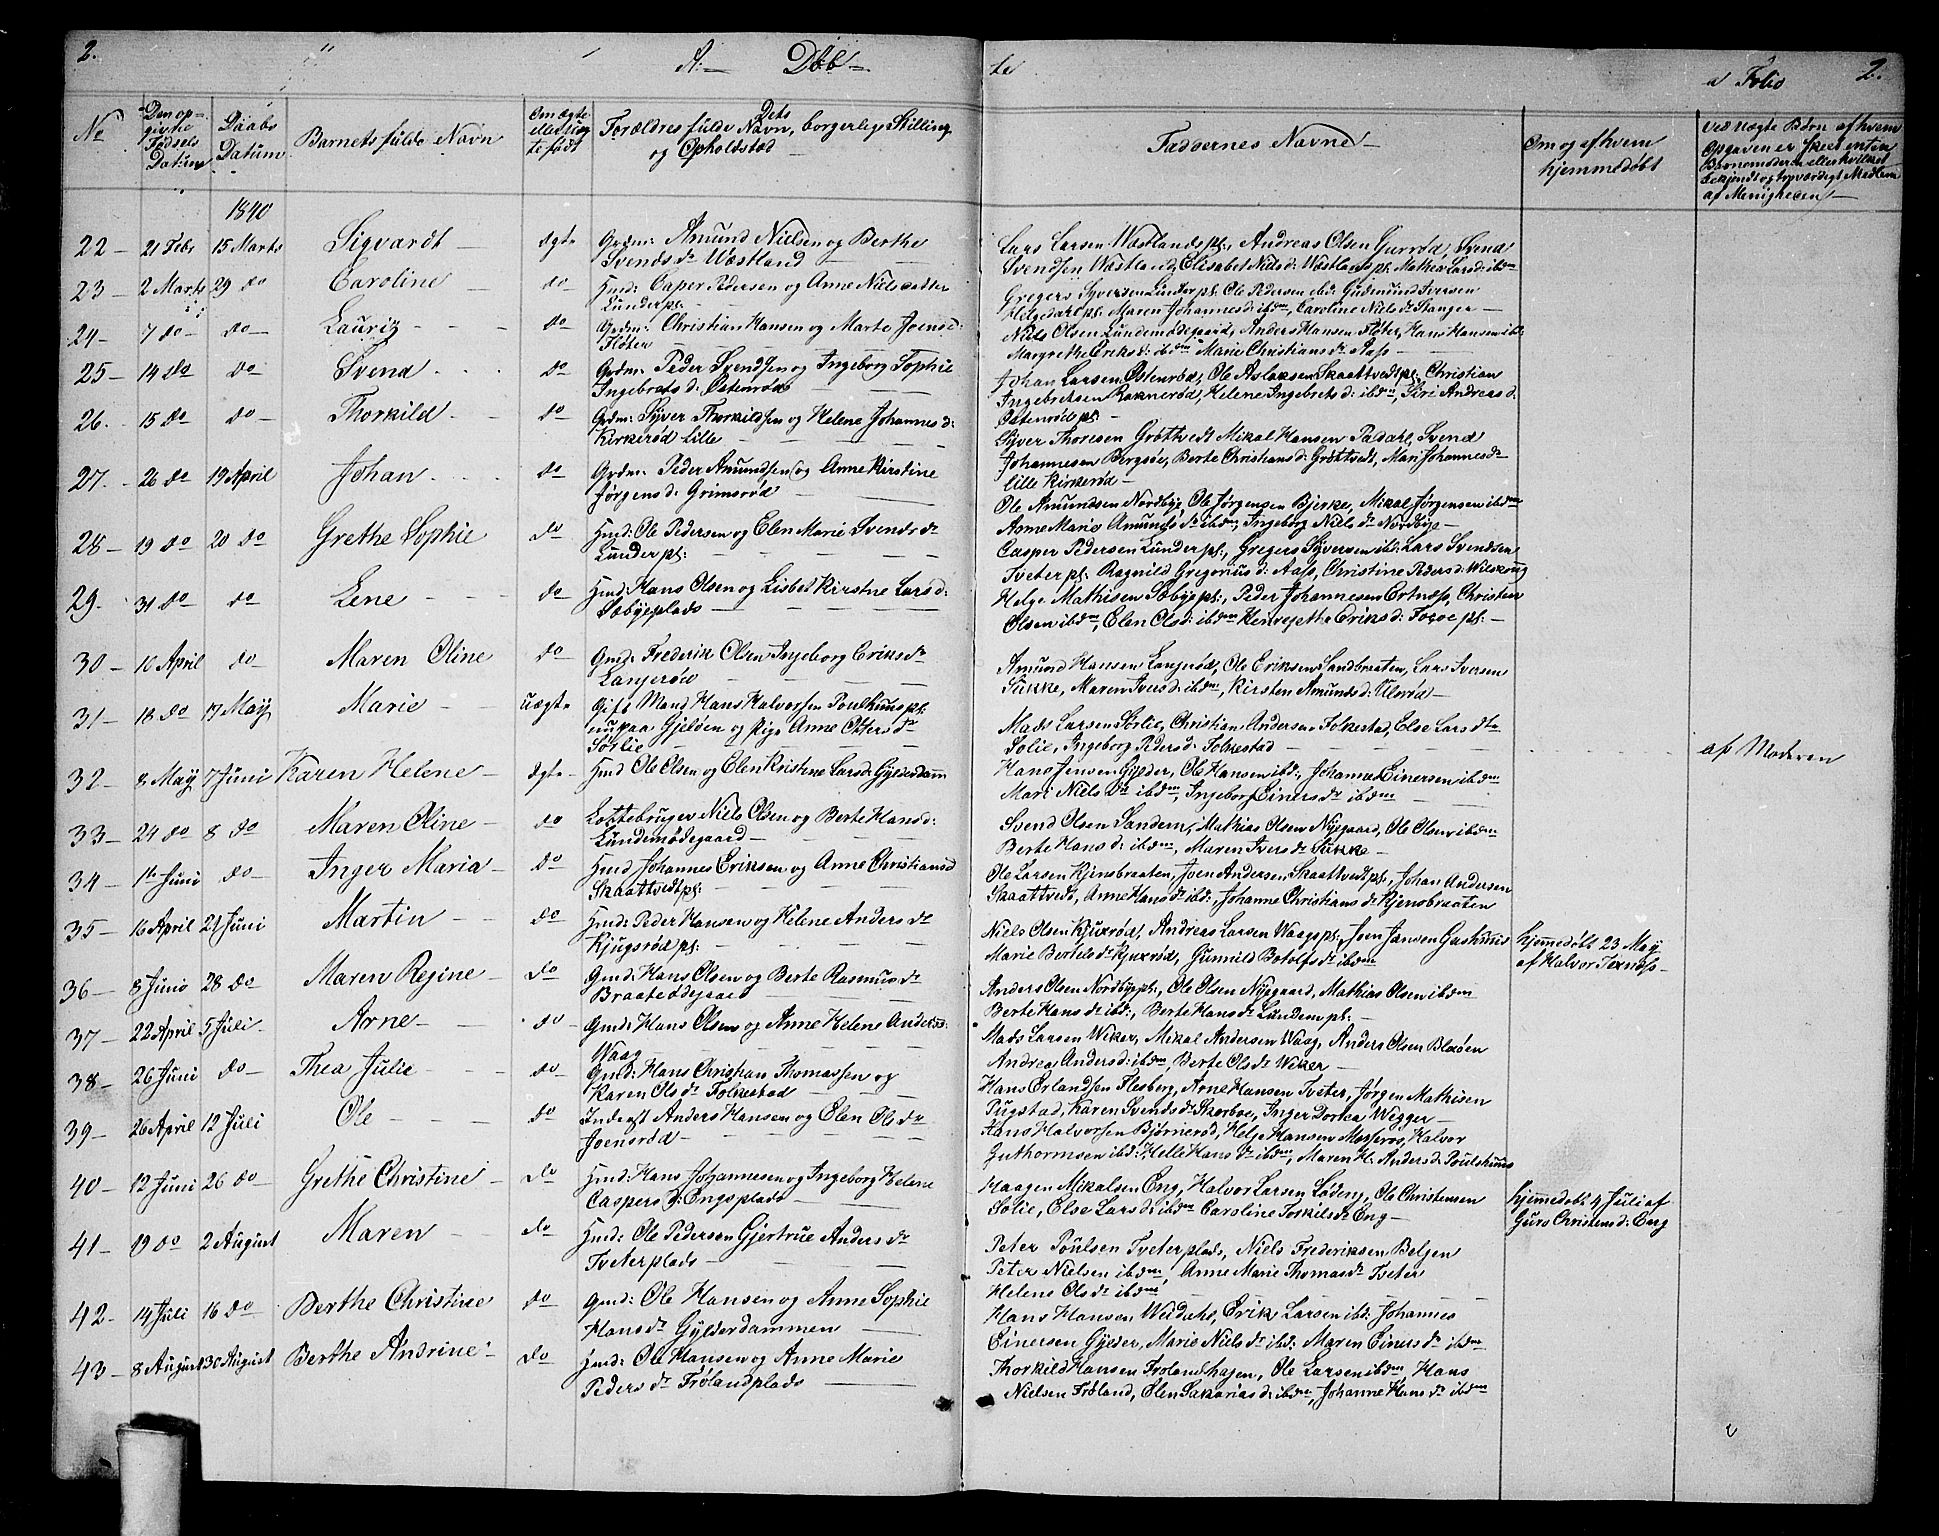 2. A:— Döb— te a Folio 2.
No
Den opgivne Fødsels Datum
Daabs Datum
Barnets fulde Navn
Om ægte eller uægte født
Forældres fulde Navn, Dets borgerlige Stilling og Opholdsted
Faddernes Navne
Om og af hvem hjemmedøbt
Ved uægte Børn af hvem Opgaven er skeet enten Barnemoderen eller hvilket bekjendt og troværdigt Medlem af Menigheden
1840
22 — 21 Febr 15 Marts Sigvardt — ægte Grdm: Amund Nielsen og Berthe
Svends dr Wæstland
Lars Larsen Wæstlandspl:, Andreas Olsen Gurrød, Svend
Svendsen Wæstland, Elisabet Niels d: Wæstlandspl: Mathea Lars d: ibdm
23 — 2 Marts 29 do Caroline do Hmd: Casper Pedersen og Anne Niels datter
Lunderpl:
Gregers Syversen Lunder pl: Ole Pedersen ibd: Gudmund Iversen
Helgedahl pl: Maren Johannes d: ibdm, Caroline Niels dr Stanger —
24 — 7 do — do — Lauriz — do Grdm: Christian Hansen og Marte Joens d:
Fløter
Niels Olsen Lundemødegaard, Anders Hansen Fløter, Hans Hansen ibd:
Margrethe Eriks d: ibdm Marie Christians dr Aass —
25 — 14 do do Svend do Grdm: Peder Svendsen og Ingeborg Sophie
Ingebrets d: Østenrød
Johan Larsen Østenrød, Ole Aslaksen Skaattvedtpl: Christian
Ingebretsen Roknerød, Helene Ingebrets d: ibdm, Siri Andreas d:
Østenrød pl: —
26. 15 do do — Thorkild — do Grdm: Syver Thorkildsen og Helene Johannes d:
Kirkerød Lille —
Syver Thoresen Grøttvedt Mikal Hansen Dadahl, Svend
Johannesen Bergsøe, Berte Christians d: Grøttvedt, Mari Johannes dr
lille Kirkerød —
27. 26 do 19 April Johan do Grdm: Peder Amundsen og Anne Kirstine
Jørgens d: Grimsrød
Ole Amundsen Nordbye, Ole Jørgensen Bjerke, Mikal Jørgensen ibdm
Anne Marie Amunds dr ibdm, Ingeborg Niels dr Nordbye —
28 — 19 do 20 do Grethe Sophie do Hmd: Ole Pedersen og Elen Marie Svends dr
Lunder pl:
Casper Pedersen Lunder pl:, Gregers Syversen ibd: Lars Svendsen
Tveter pl: Ragnild Gregorius d: Aass, Christine Peders d: Wilskoug
29. 31 do do Lene do — Hmd: Hans Olsen og Lisbet Kirstne Lars d:
Søbyeplads —
Helge Mathisen Søbyepl:, Peder Johannesen Ortness, Christen
Olsen ibdm, Elen Ols d: ibdm Kenrejethe Eriks d: Fosse pl: —
30 — 10 April do — Maren Oline do Gmd: Frederik Olsen Ingeborg Eriks dr
Langerød —
Amund Hansen Langrød, Ole Eriksen Sandbraaten, Lars Iversen
Sukke, Maren Ivers d: ibdm, Kirsten Amunds d: Ulerød —
31 — 18 do 17 May Marie — uægte Gift Mand Hans Halvorsen Poulshuus pl:
nu paa Gjelden og Pige Anne Otters dr
Sørlie —
Mads Larsen Sørlie, Christian Andersen Folkestad, Else Lars dr
Solie, Ingeborg Peders d: Folkestad —
af Moderen
32 — 8 May 7 Juni Karen Helene — ægte — Hmd Ole Olsen og Elen Kristine Lars d: Gylderdamm
Hans Jensen Gylder, Ole Hansen ibd:, Johannes Einersen ibdm
Mari Niels dr ibdm, Ingeborg Einers dr ibdm
33 — 24 do 8 do Maren Oline — do Lottebruger Niels Olsen og Berte Hans d:
Lundemødegaard —
Svend Olsen Sandem, Mathias Olsen Nyegaard, Ole Olsen ibdm
Berte Hans d: ibdm, Maren Ivers dr Sukke —
34 — 1te Juni do — Inger Maria — do Hmd Johannes Eriksen og Anne Christians d
Skaattvedtpl:
Ole Larsen Kjensbraaten, Joen Andersen Skaattvedtpl:, Johan Andersen
Skaattvedt, Anne Hans dr ibd:, Johanne Christians dr Kjensbraaten
35 — 16 April 21 Juni Martin — do Hmd: Peder Hansen og Helene Anders dr
Kjugsrød pl: —
Niels Olsen Kjuxrød, Andreas Larsen Waagspl:, Joen Jansen Gashuus
Marie Bertels dr Kjuxrød, Gunnild Botolfs dr ibdm
hjemmedøbt 23 May
af Halvor Texness —
36 — 8 Juni 28 do Maren Regine — do Gmd: Hans Olsen og Berte Rasmus dr
Braatødegaard —
Anders Olsen Nordbyepl:, Ole Olsen Nyegaard, Mathias Olsen ibdm
Berte Hans d: ibd:, Berte Hans dr Lundem pl: —
37 — 22 April 5 Juli — Arne — do — Gmd: Hans Olsen og Anne Helene Anders d:
Waag
Mads Larsen Wiker, Mikal Andersen Waag, Anders Olsen Bloxøen
Andrea Anders d: ibdm, Berte Ols dr Wiker —
38 — 26 Juni do — Thea Julie — do — Gmd: Hans Christian Thomassen og
Karen Ols dr Folkestad —
Hans Erlandsen Flesberg, Arne Hansen Tveter, Jørgen Mathisen
Pugstad, Karen Svends dr Skorboe, Inger Dorthea Wegger —
39 — 26 April 12 Juli Ole — do Inderst Anders Hansen og Elen Ols dr
Joensrød —
Hans Halvorsen Bjørnerød, Helje Hansen Mosseros, Halvor
Guthormsen ibd: Helle Hans dr ibdm, Maren H. Anders d: Poulshuus
40 — 12 Juni 26 do Grethe Christine — do Hmd: Hans Johannesen og Ingeborg Helene
Caspers dr Engsplads —
Haagen Mikalsen Eng, Halvor Larsen Løden, Ole Christensen
Solie, Else Lars d: ibdm Caroline Torkils dr Eng —
hjemedøbt 4 Juli af
Guro Christens d: Eng
41 — 19 do 2 August Maren — do Hmd: Ole Pedersen Gjertrue Anders dr
Tveterplads —
Peter Poulsen Tveterplads, Niels Frederiksen Beljen
Peter Nielsen ibdm, Anne Marie Thomas dr Tveter
Helene Ols dr ibdm
42 — 14 Juli 16 do Berthe Christine do Gmd: Ole Hansen og Anne Sophie
Hans dr Gylderdammen —
Hans Hansen Weidahl, Erik Larsen ibd: Johannes
Einersen Gylder, Marie Niels dr ibd: Maren Einers dr ibdm
43 — 8 August 30 August Berthe Andrine — do Hmd: Ole Hansen og Anne Marie
Peders dr Frølandplads —
Thorkild Hansen Frolandshagen, Ole Larsen ibdm, Hans
Nielsen Frøland, Elen Sakarias d: ibdm, Johanne Hans dr ibdm